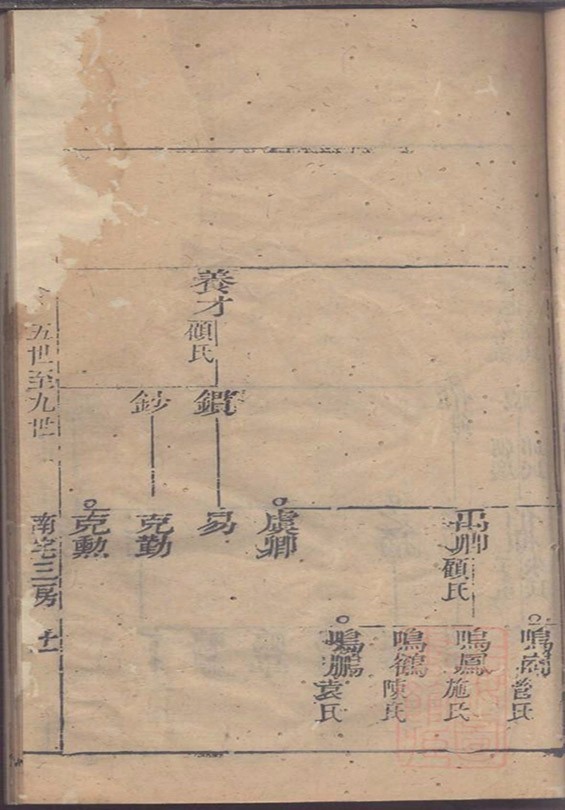 養才
顧氏
鈔
易
克勤
克勲
虞卿
禹卿
顧氏
鳴
管氏
鳴鳳
施氏
鳴鶴
陳氏
鳴鵬
袁氏
五世至九世
南宅三房
十一